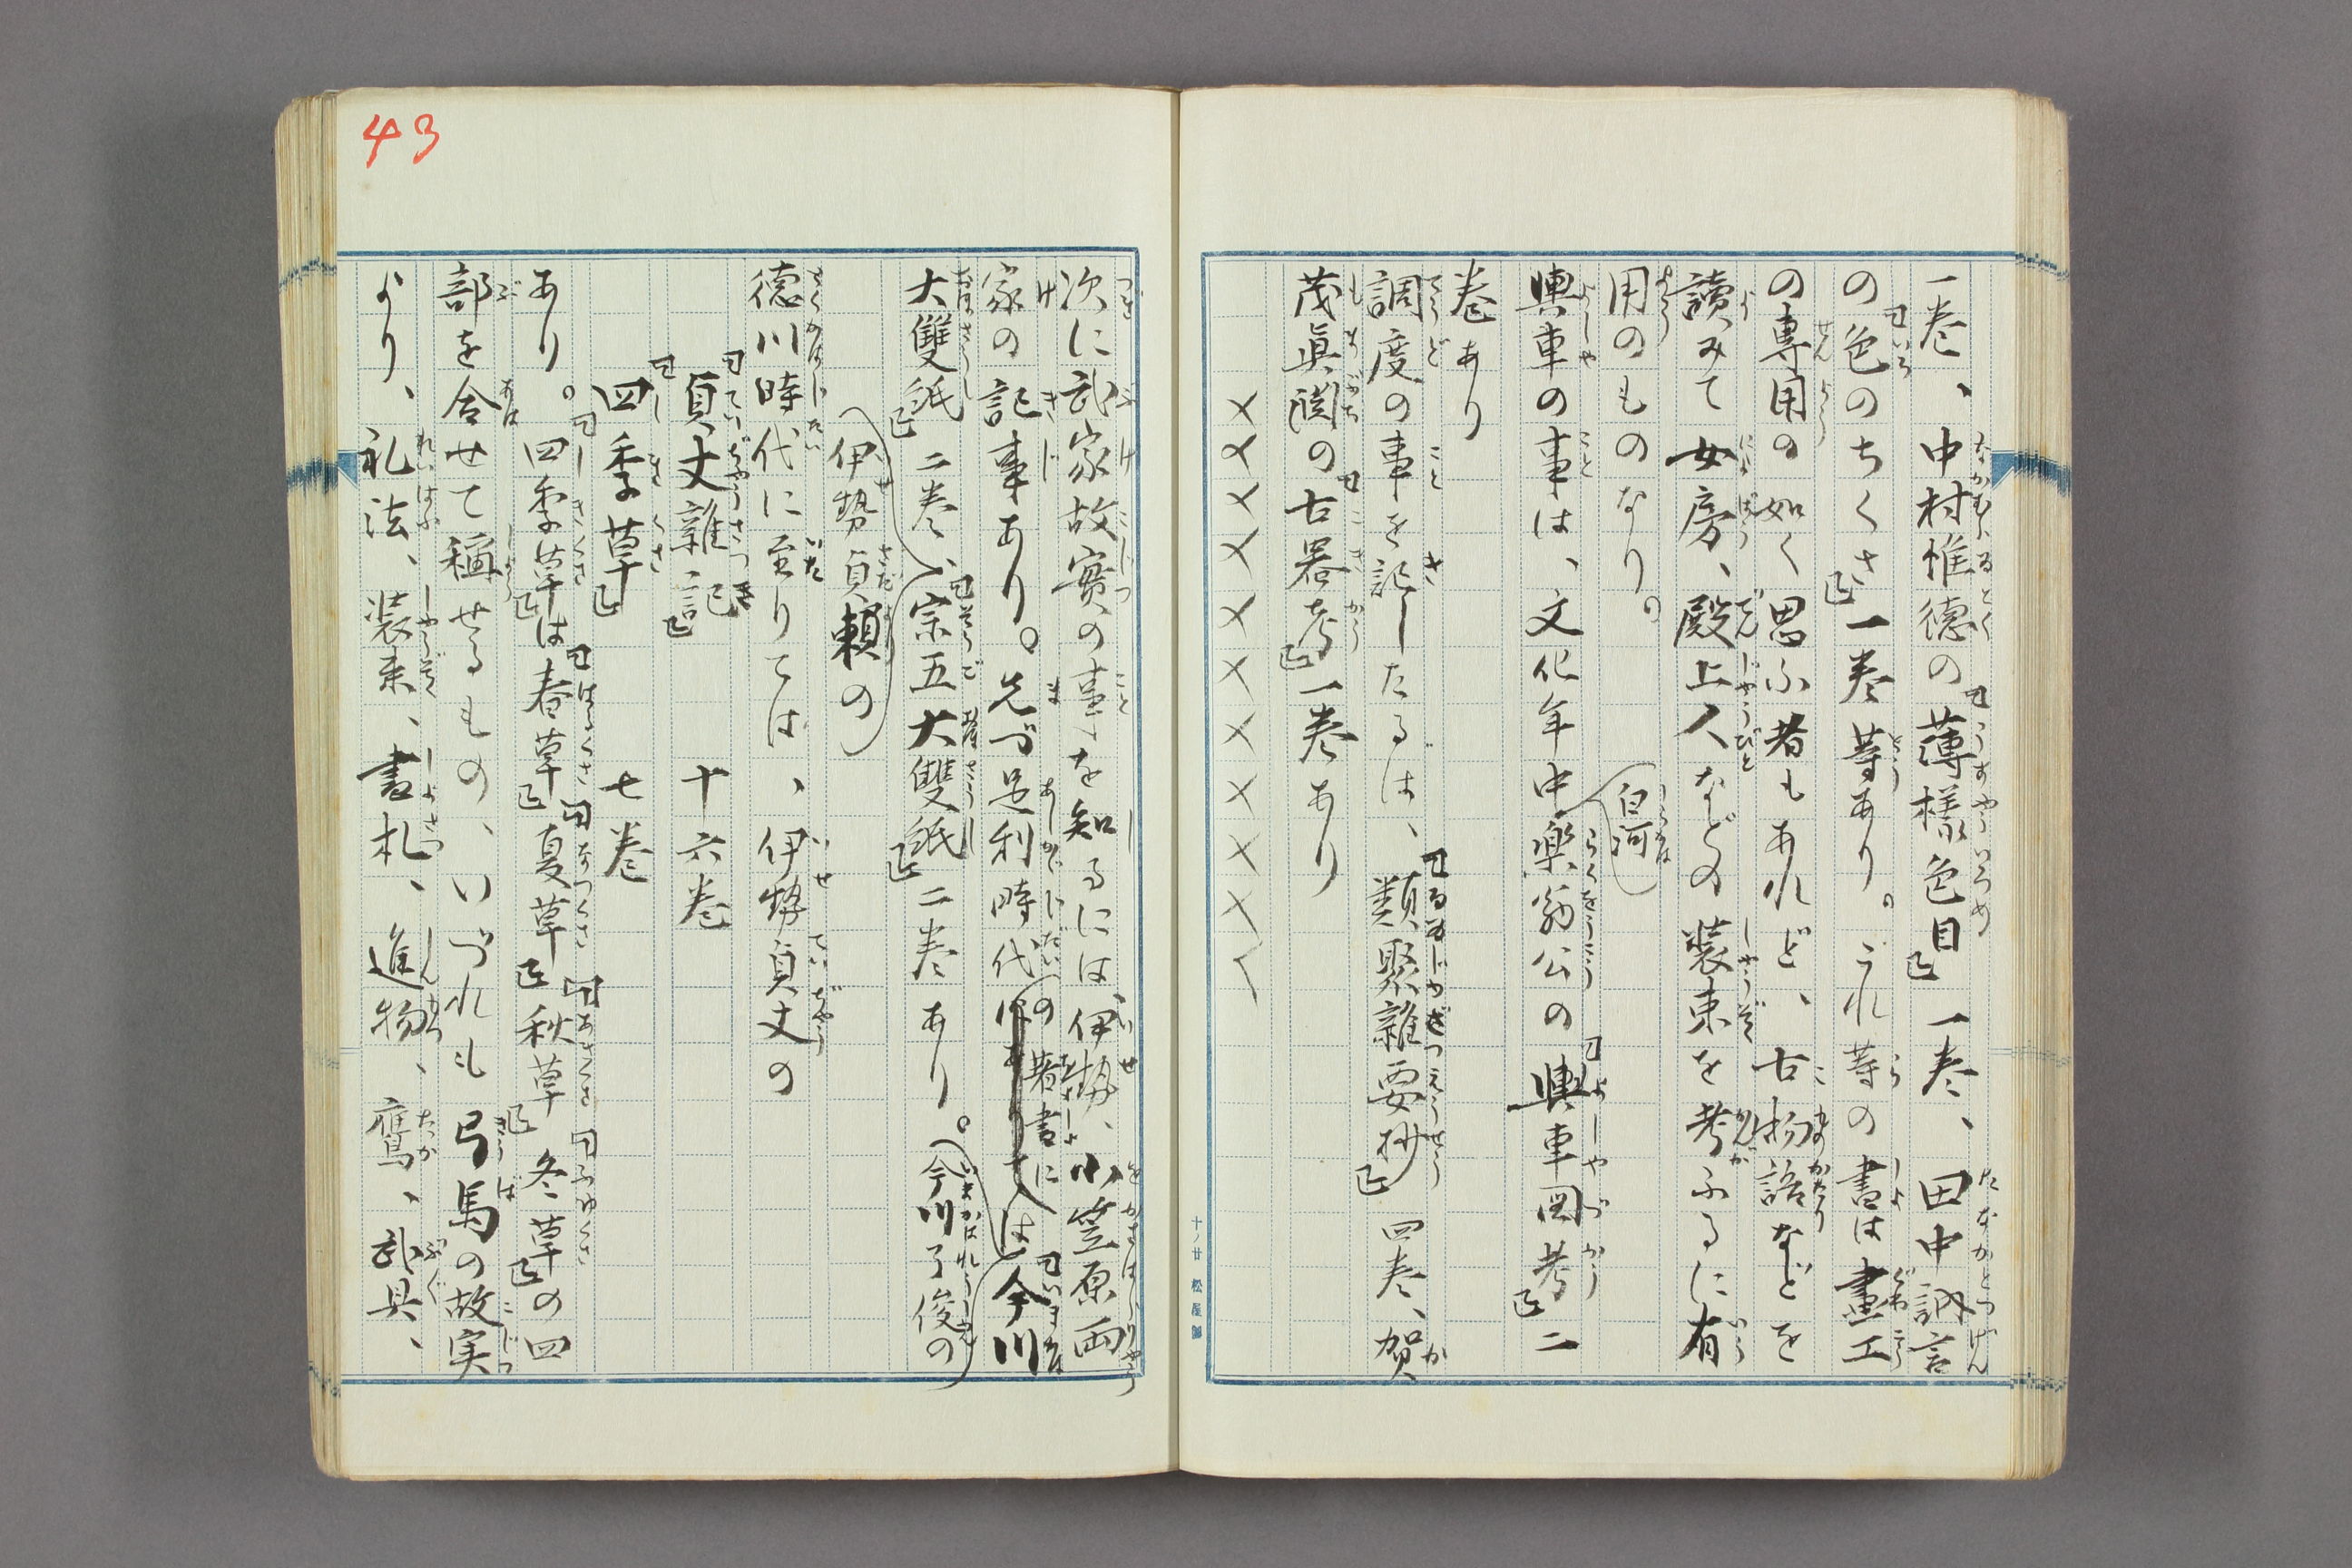 一巻、中村惟徳の『薄様色目』一巻、田中訥言
の『色のちくさ』一巻等あり。これ等の書は畫工
の専用の如く思ふ者もあれど、古物語などを
讀みて女房、殿上人などの装束を考ふるに有
用のものなり。
輿車の事は、文化年中白河楽翁公の『輿車図考』二
巻あり
調度の事を記したるは、『類聚雜要抄』四巻、賀
茂眞淵の『古器考』一巻あり
××××××××××
十ノ廿 松屋製
43
次に武家故實の事を知るには伊勢、小笠原両
家の記事あり。先づ足利時代の著書には『今川
大雙紙』二巻、伊勢貞頼の『宗五大雙紙』二巻あり。今川了俊の
徳川時代に至りては、伊勢貞丈の
『貞丈雜記』 十六巻
『四季草』 七巻
あり。『四季草』は『春草』『夏草』『秋草』『冬草』の四
部を合せて稱せるもの、いづれも弓馬の故実
より、礼法、装束、書札、進物、鷹、武具、